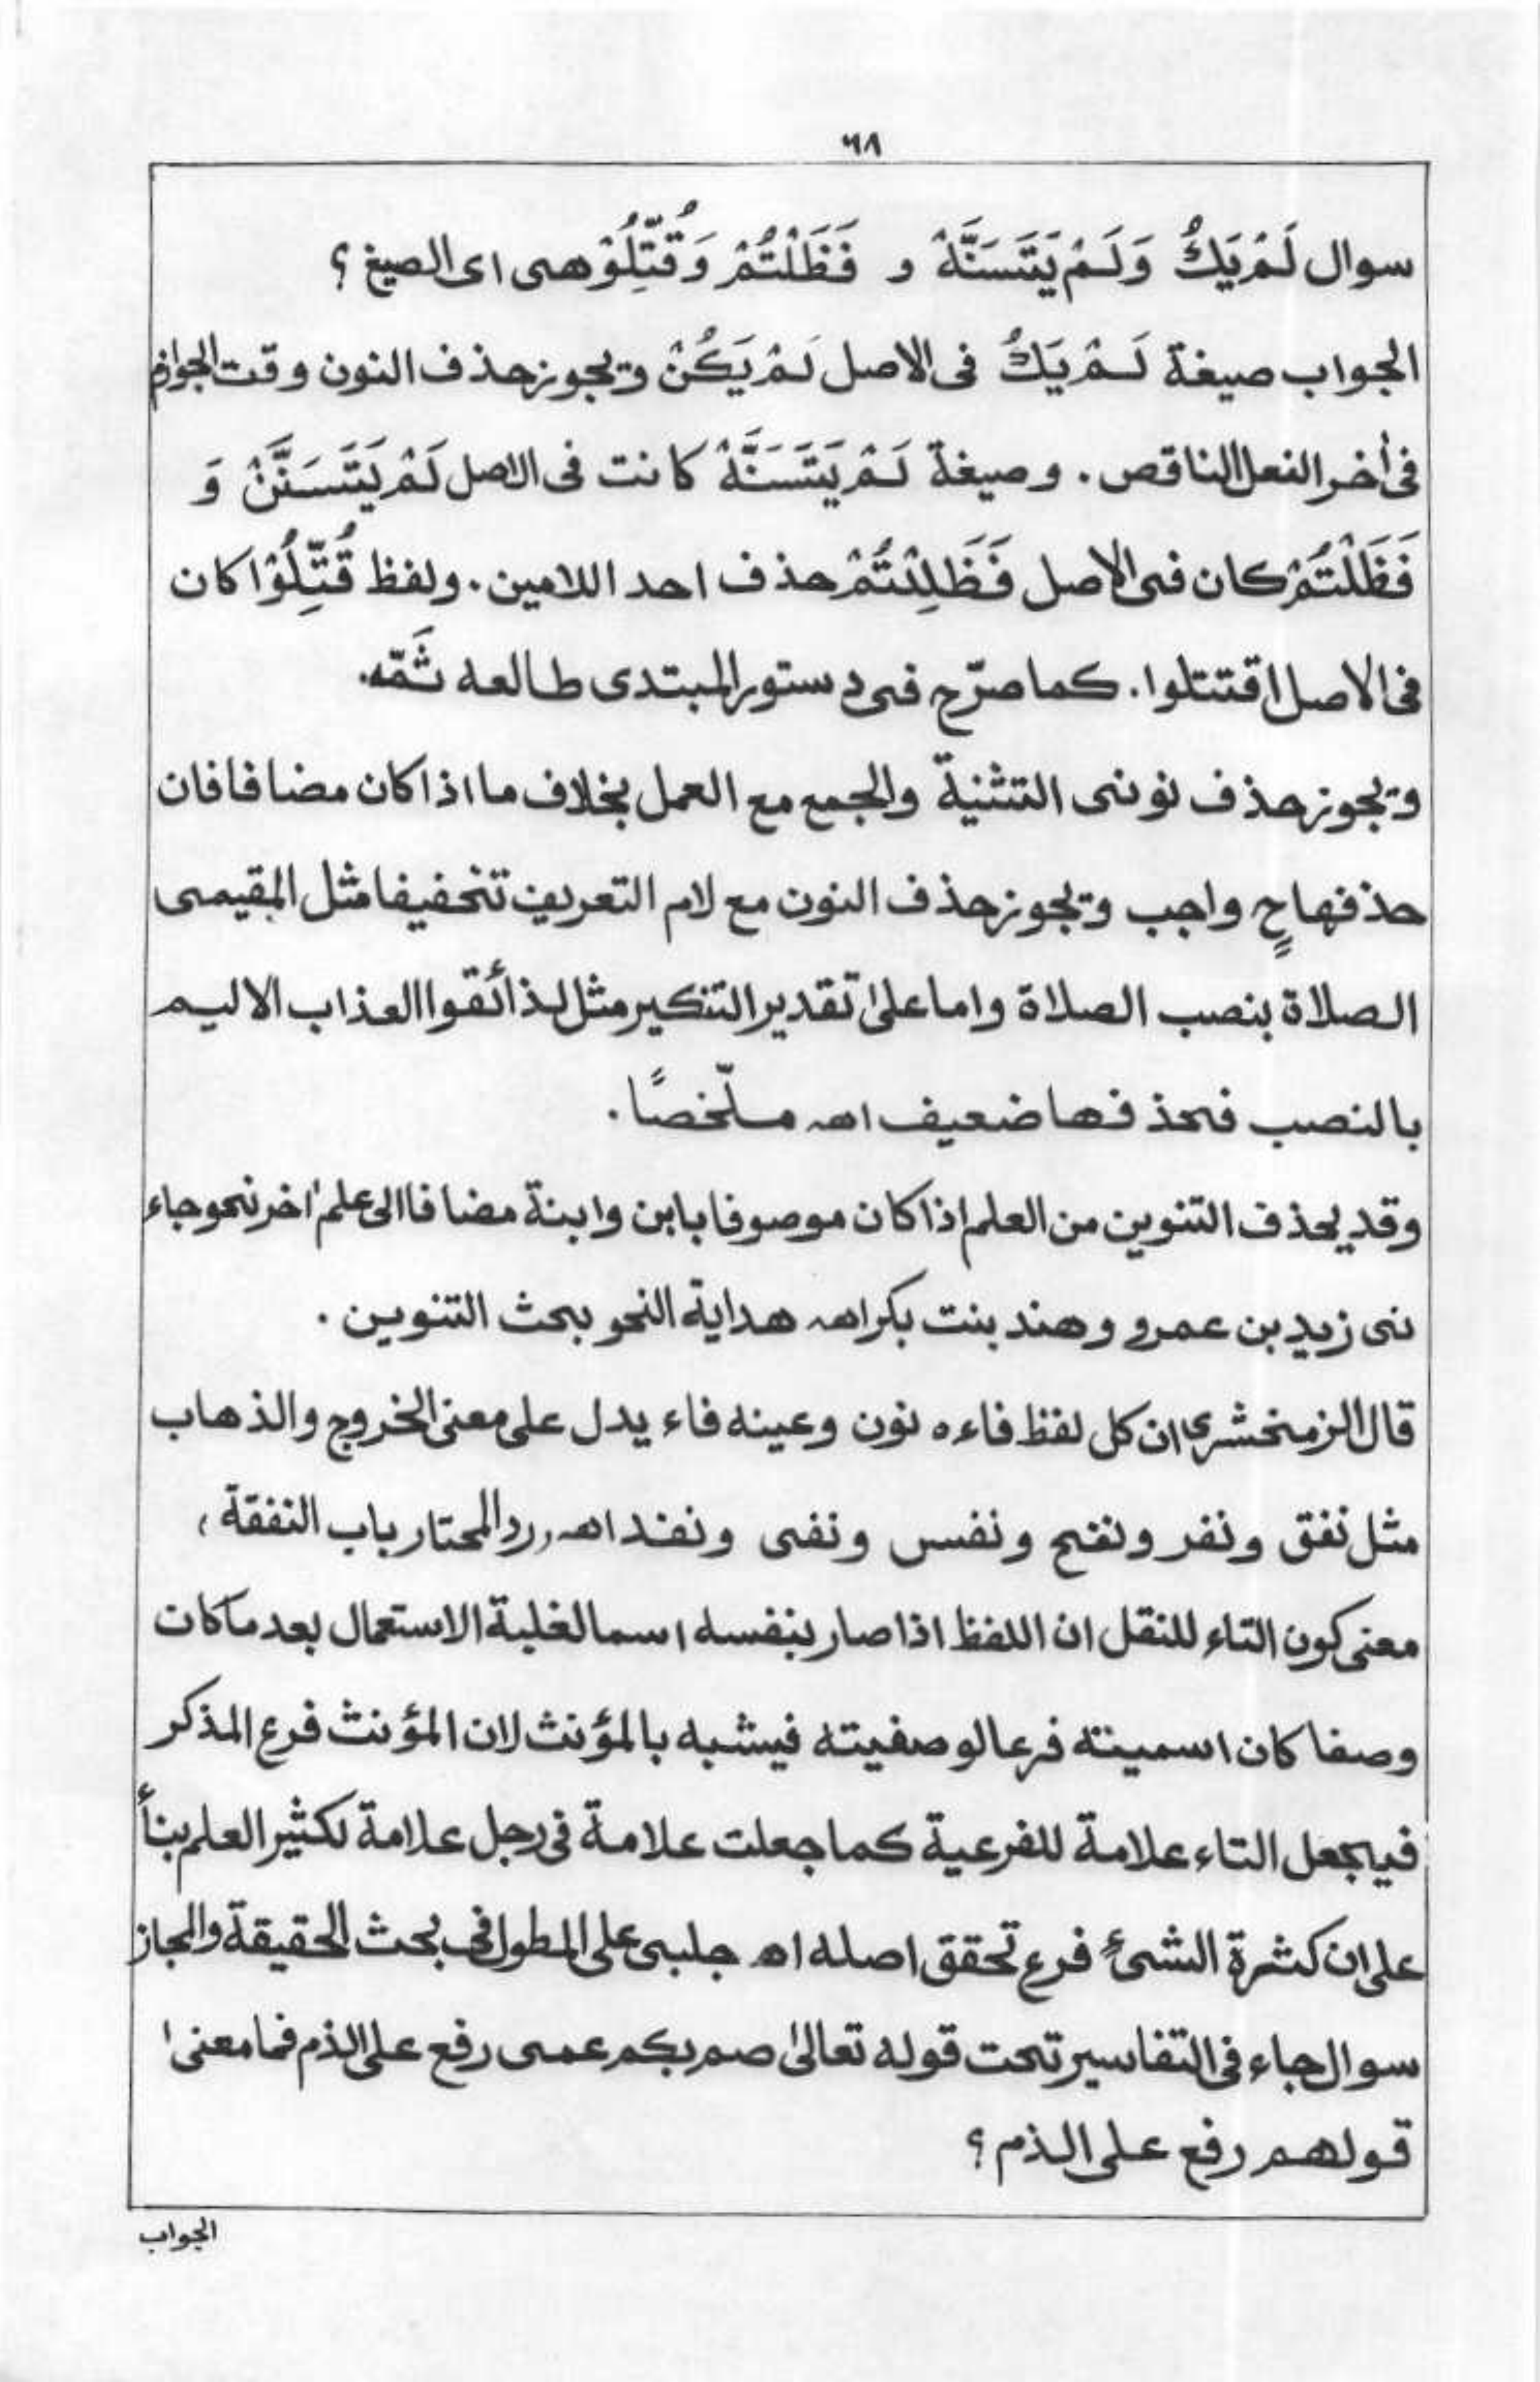 ٦٨
سوال لَمْ يَكُ وَلَمْ يَتَسَنَّهْ و فَظَلْتُمْ وَقُتِّلُوْ هى اى الصيغ ؟
الجواب صيغة لَمْ يَكُ فى الاصل لَمْ يَكُنْ ويجوز حذف النون وقت الجوازم
فى أخر الفعل الناقص . وصيغة لَمْ يَتَسَنَّهْ كانت فى الاصل لَمْ يَتَسَنَّنْ وَ
فَظَلْتُمْ كان فى الاصل فَظَلِلْتُمْ حذف احد اللامين . ولفظ قُتِّلُوْا كان
فى الاصل اقتتلوا . كما صرّح فى دستور المبتدى طالعه ثَمّه.
ويجوز حذف نونى التثنية والجمع مع العمل بخلاف ما اذا كان مضافا فان
حذفها حٍ واجب ويجوز حذف النون مع لام التعريف تخفيفا مثل المقيمى
الصلاة بنصب الصلاة واما على تقدير التنكير مثل لذائقوا العذاب الاليم
بالنصب فحذفها ضعيف اهـ ملّخصًا .
وقد يحذف التنوين من العلم اذا كان موصوفا بابن وابنة مضافا الى علم اخر نحو جاء
نى زيد بن عمرو وهند بنت بكر اهـ هداية النحو بحث التنوين .
قال الزمخشرى ان كل لفظ فاءه نون وعينه فاء يدل على معنى الخروج والذهاب
مثل نفق ونفر ونفح ونفس ونفى ونفد اهـ، رد المحتار باب النفقة ،
معنى كون التاء للنقل ان اللفظ اذا صار بنفسه اسما لغلبة الاستعمال بعد ما كان
وصفا كان اسميته فرعا لوصفيته فيشبه بالمؤنث لان المؤنث فرع المذكر
فيجعل التاء علامة للفرعية كما جعلت علامة فى رجل علامة لكثير العلم بنأ
على ان كثرة الشئ فرع تحقق اصله اهـ جلبى على المطول فى بحث الحقيقة والمجاز
سوال جاء فى التفاسير تحت قوله تعالىٰ صم بكم عمى رفع على الذم فما معنى
قولهم رفع على الذم ؟
الجواب